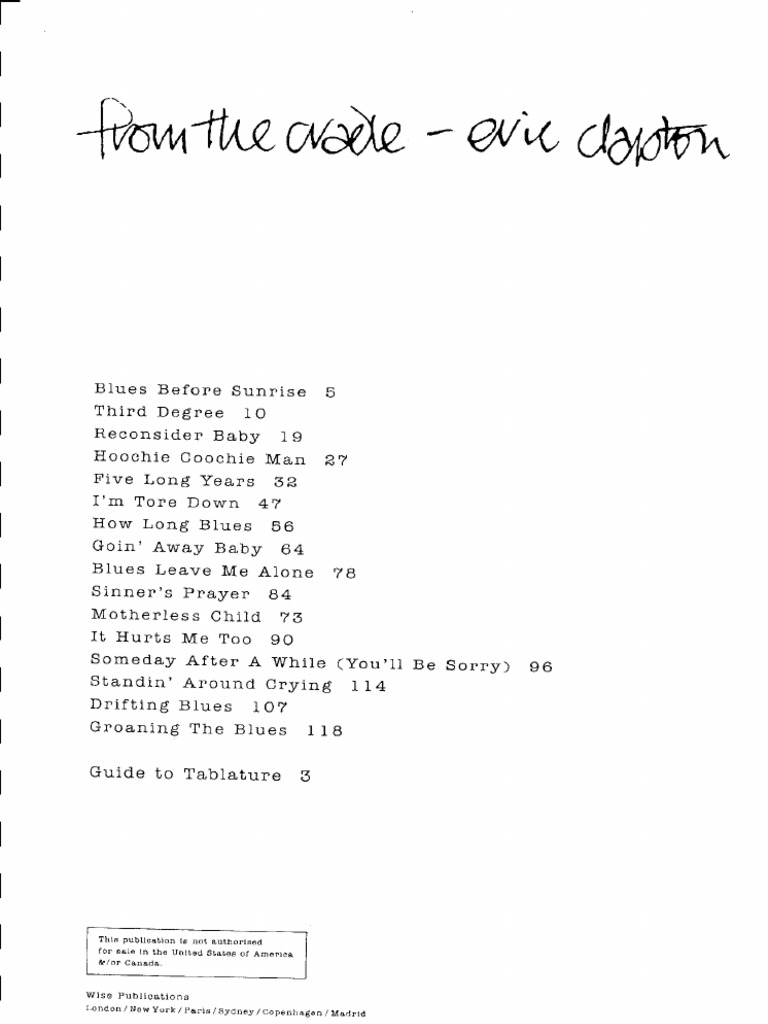 from the cradle - eric clapton
Blues Before Sunrise 5
Third Degree 10
Reconsider Baby 19
Hoochie Coochie Man 27
Five Long Years 32
I'm Tore Down 47
How Long Blues 56
Goin' Away Baby 64
Blues Leave Me Alone 78
Sinner's Prayer 84
Motherless Child 73
It Hurts Me Too 90
Someday After A While (You'll Be Sorry) 96
Standin' Around Crying 114
Drifting Blues 107
Groaning The Blues 118
Guide to Tablature 3
This publication is not authorised
for sale in the United States of America
&/or Canada.
Wise Publications
London/New York/Paris/Sydney/Copenhagen/Madrid